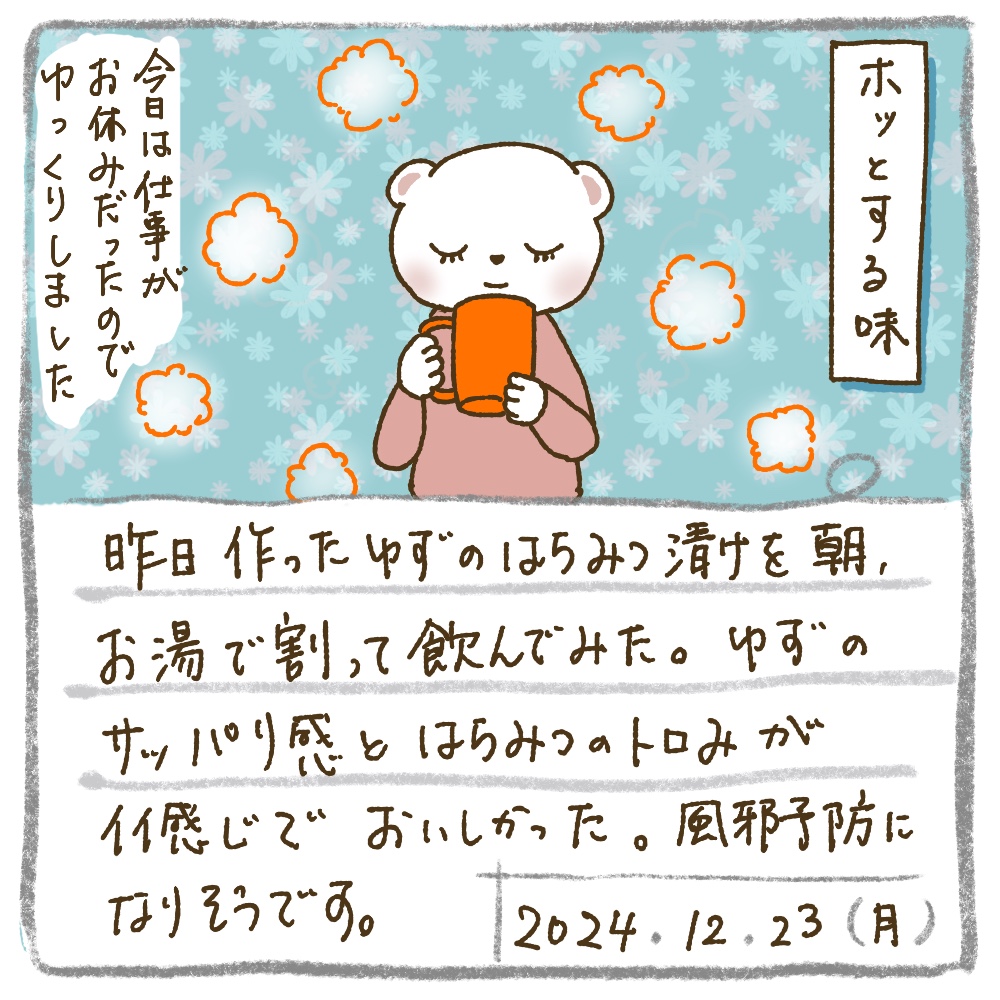 ホッとする味
今日は仕事が
お休みだったので
ゆっくりしました
昨日作ったゆずのはちみつ漬けを朝、
お湯で割って飲んでみた。ゆずの
サッパリ感とはちみつのトロみが
イイ感じでおいしかった。風邪予防に
なりそうです。
2024.12.23(月)